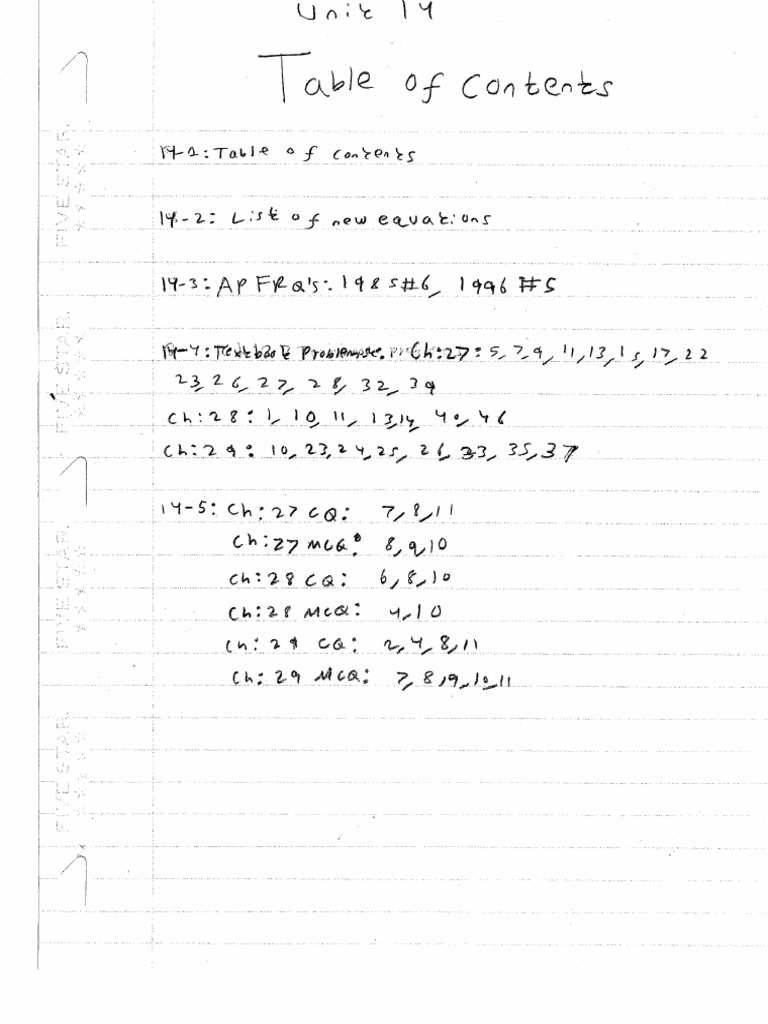 Unit 14
Table of Contents
14-1: Table of contents
14-2: List of new equations
14-3: AP FRQ's: 1985#6, 1996 #5
14-4: Textbook Problems: Ch:27: 5, 7, 9, 11, 13, 15, 17, 22
23, 26, 27, 28, 32, 39
Ch:28: 1, 10, 11, 13, 14, 40, 46
Ch:29: 10, 23, 24, 25, 26, 33, 35, 37
14-5: Ch:27 CQ: 7, 8, 11
Ch:27 MCQ: 8, 9, 10
Ch:28 CQ: 6, 8, 10
Ch:28 MCQ: 4, 10
Ch:29 CQ: 2, 4, 8, 11
Ch:29 MCQ: 7, 8, 9, 10, 11
FIVE STAR.
FIVE STAR.
FIVE STAR.
FIVE STAR.